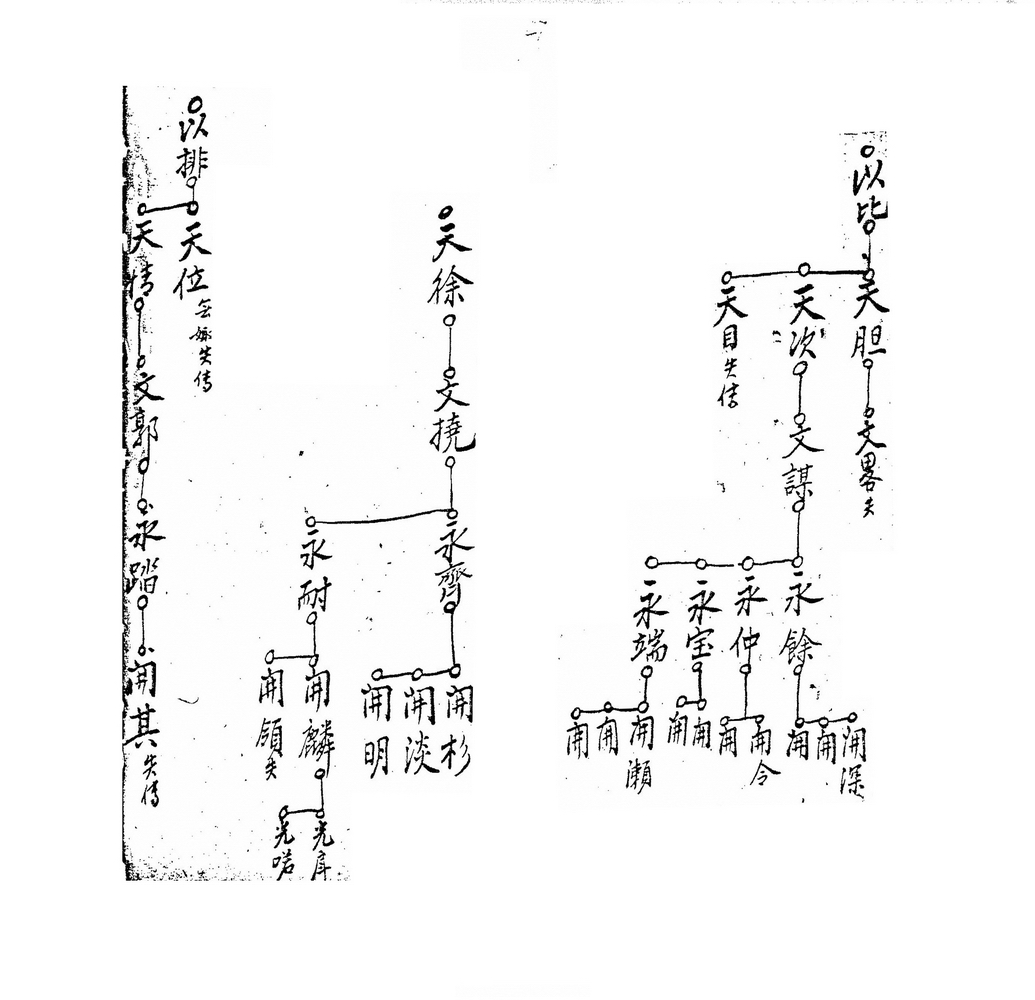 以毕
天胆
天次
天目失传
文畧失
文謀
永餘
永仲
永宝
永端
開深
開
開
開令
開
開
開
開瀬
開
開
天徐
文撓
永齊
永耐
開杉
開淡
開明
開麟
開領失
光庠
光喏
以排
天位
失传
天情
文郭
永踏
開其失传